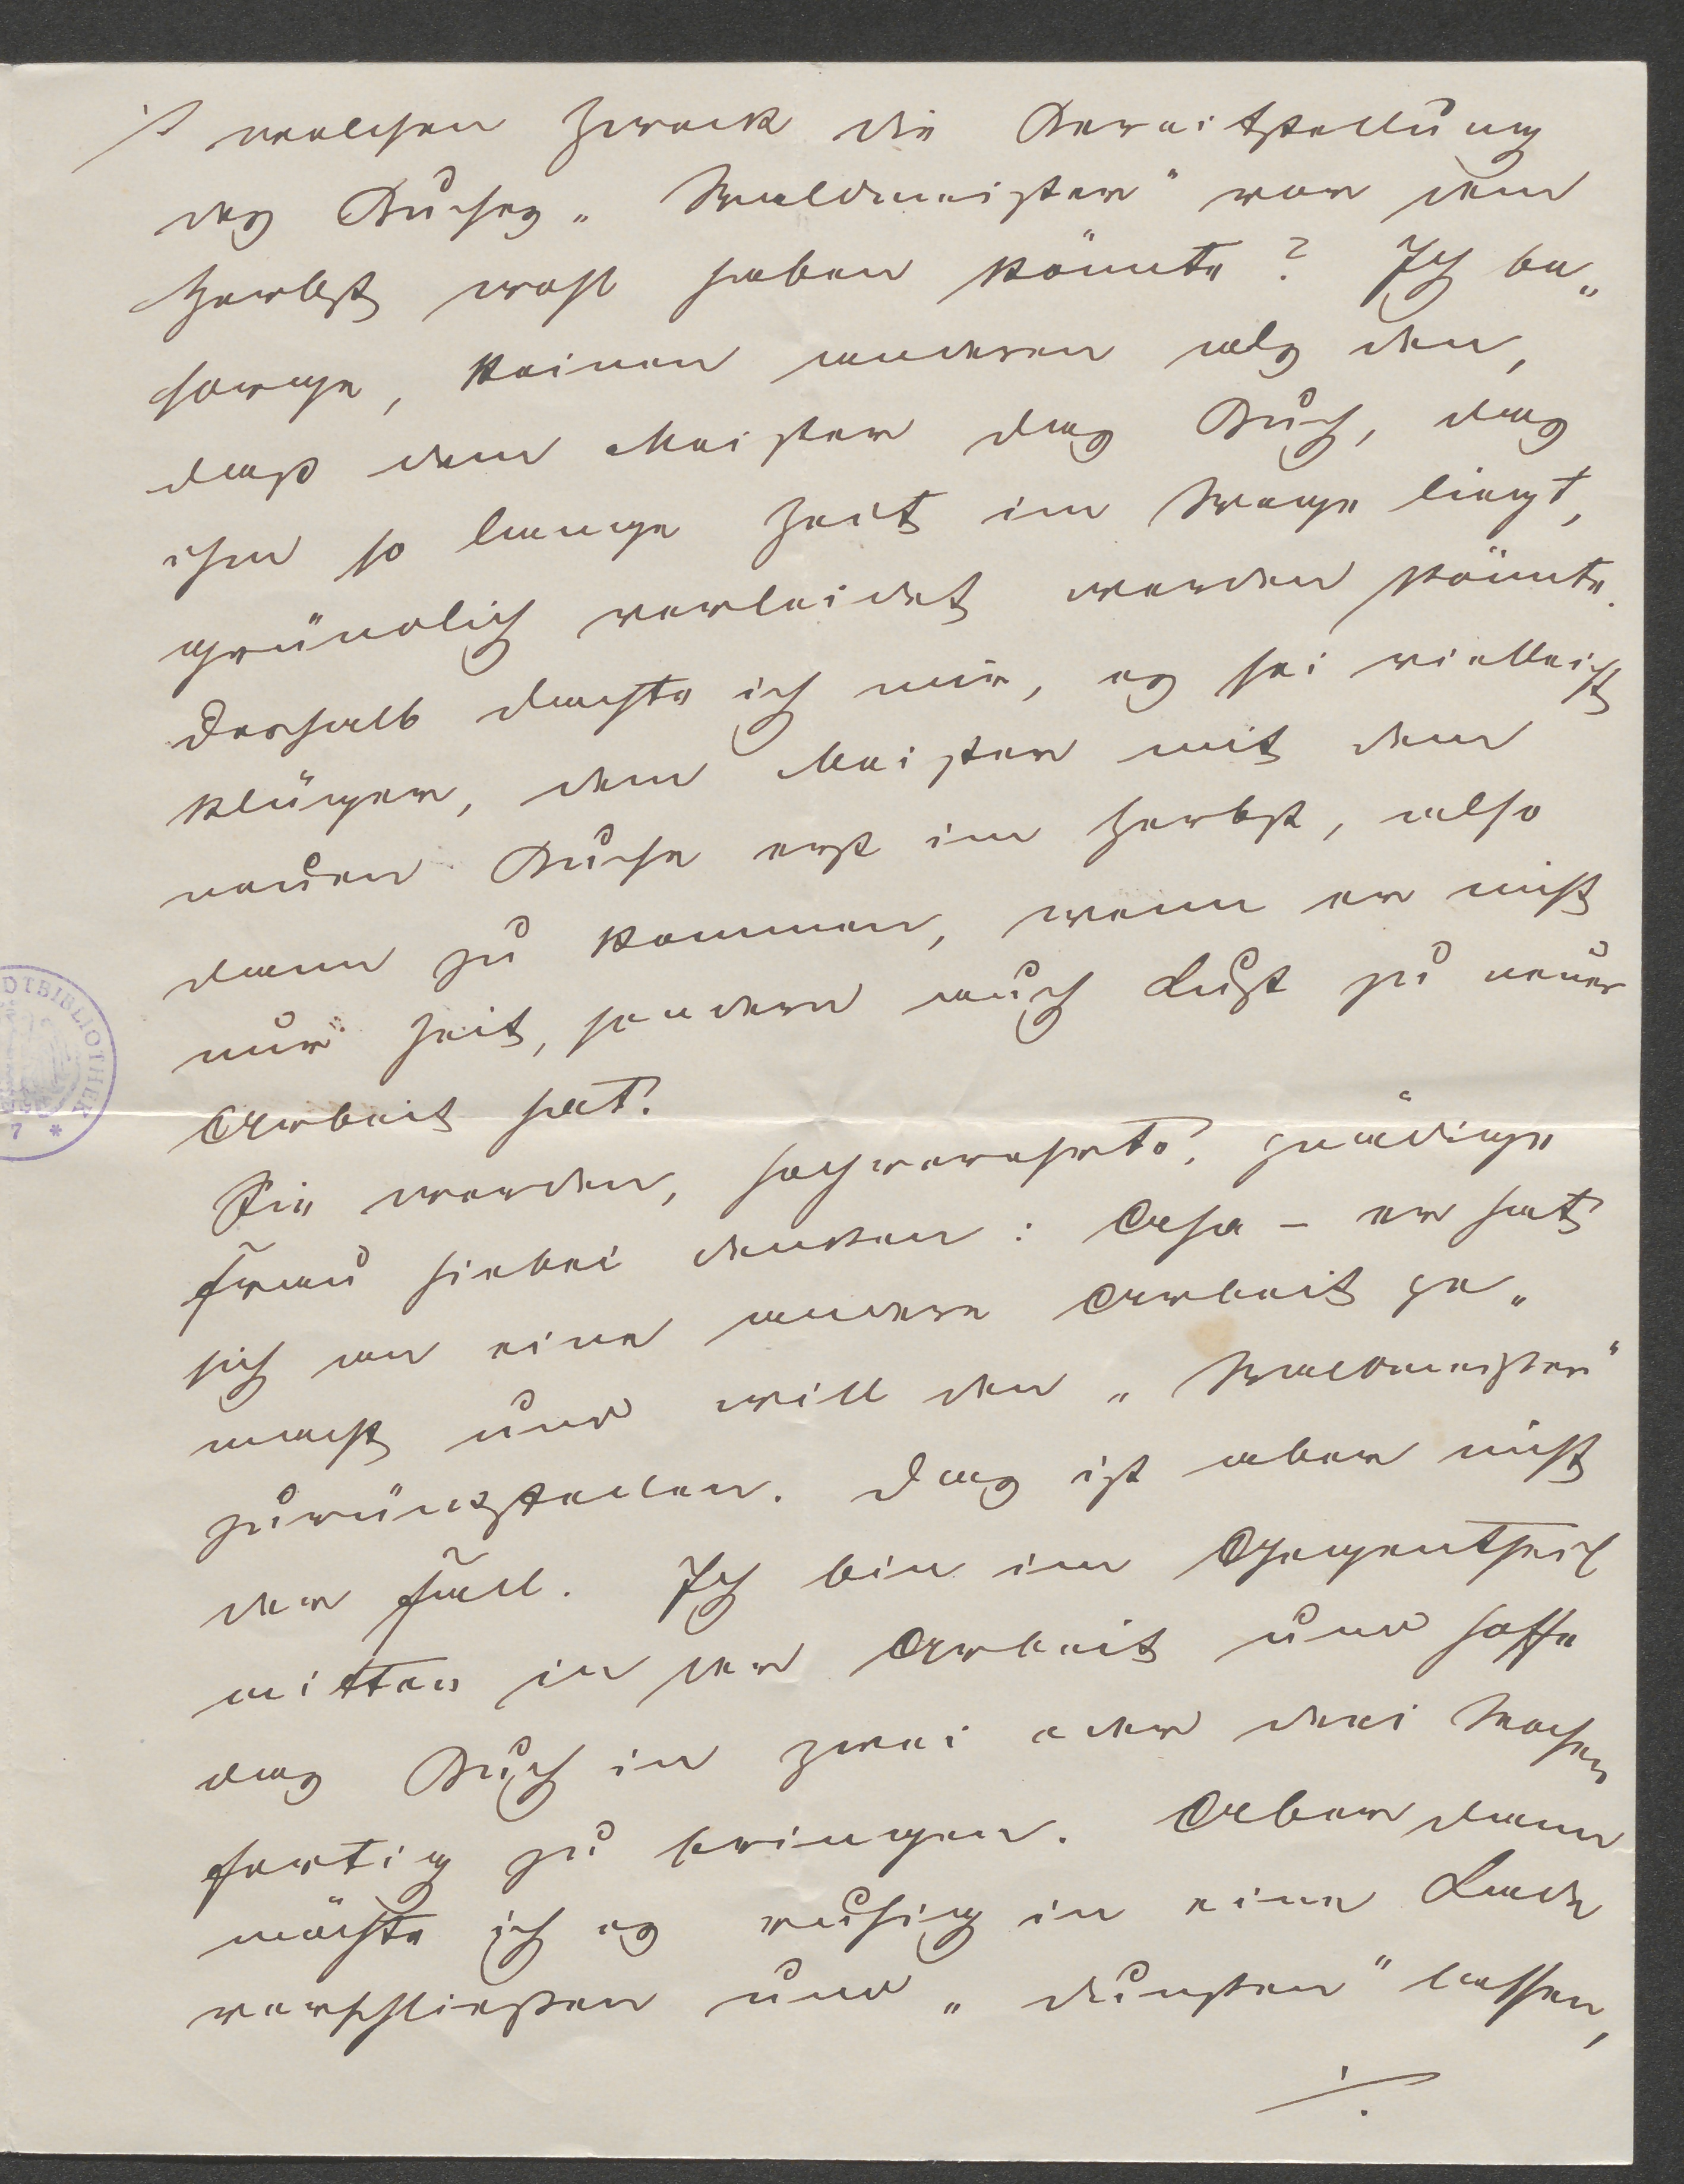 welchen Zweck die Bereitstellung
des Buches „Waldmeister" vor dem
Herbst wohl haben könnte? Ich be„
sorge, keinen anderen als den,
daß dem Meister das Buch, das
ihm so lange Zeit im Wege liegt,
gründlich verleidet werden könnte.
Deshalb dachte ich mir, es sei vielleicht
klüger, dem Meister mit dem
neuen Buche erst im Herbst, also
dann zu kommen, wenn er nicht
nur Zeit, sondern auch Lust zu neuer
Arbeit hat.
Sie werden, hochverehrte, gnädige
Frau hiebei denken: Aha – er hat
sich an eine andere Arbeit ge„
macht und will den „Waldmeister"
zurückstellen. Das ist aber nicht
der Fall. Ich bin im Gegentheil
mitten in der Arbeit und hoffe
das Buch in zwei oder drei Wochen
fertig zu bringen. Aber dann
möchte ich es ruhig in eine Lade
verschließen und „dunsten" lassen,
./.
DTBIBLIOTHEK
7 *